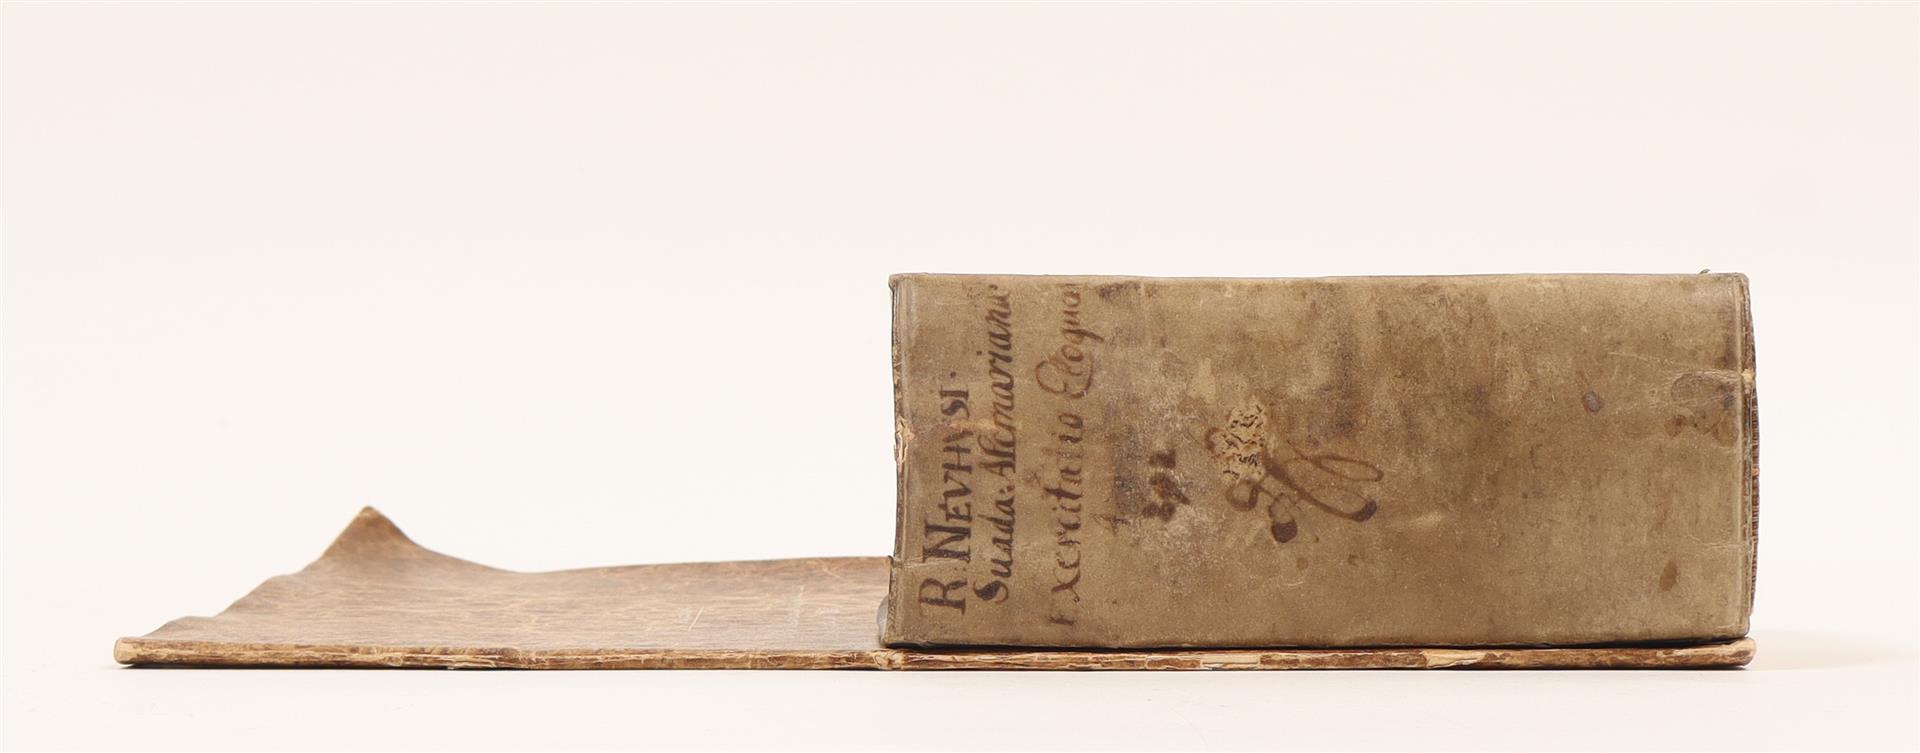 R. NEVHVSI.
Suada: Alcmariana
Exercitatio Eloqua
892